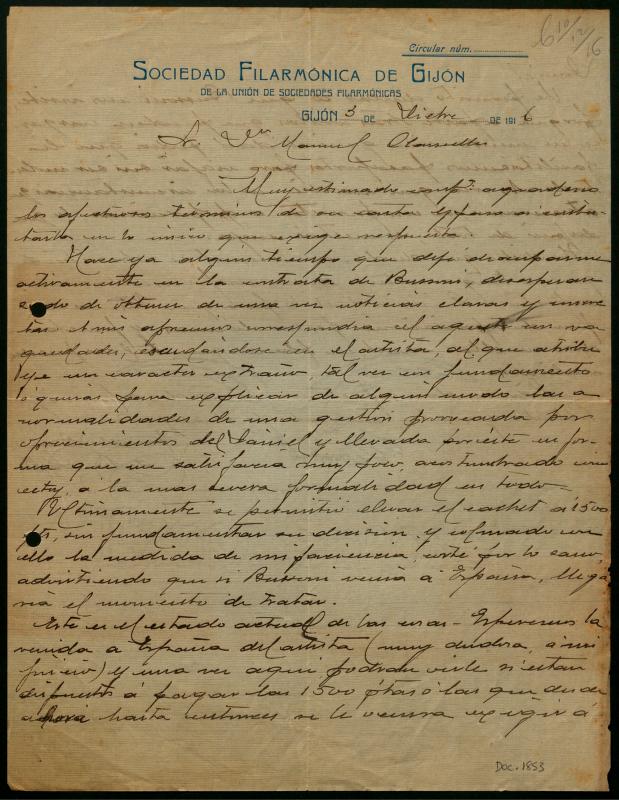 6 10/12/6
Circular núm.
SOCIEDAD FILARMÓNICA DE GIJÓN
DE LA UNIÓN DE SOCIEDADES FILARMÓNICAS
GIJÓN 3 DE Dicbre DE 1916
Sr. Dn Manuel
Muy estimado compº: agradezco
los afectuosos términos de su carta y paso a contes-
tarla en lo único que exige respuesta.
Hace ya algún tiempo que dejé de ocuparme
activamente en la contrata de Bussoni, desesperan
do de obtener de una vez noticias claras y concre
tas. A mis apremios correspondía el agente con va
guedades, escudándose en el artista, al que atribu
ye un caracter extraño, tal vez sin fundamento
ó quizás para explicar de algún modo las a
normalidades de una gestión provocada por
ofrecimientos del Daniel y llevada por éste en for-
ma que me satisfacía muy poco, acostumbrado como
estoy, á la mas severa formalidad en todo.
Ultimamente se permitió elevar el cachet á 1500
pts, sin fundamentar su decisión, y colmado con
ello la medida de mi paciencia, corté por lo sano,
advirtiendo que si Bussoni venía á España, llega
ría el momento de tratar.
Este es el estado actual de las cosas. Esperemos la
venida a España del artista (muy dudosa, á mi
juicio) y una vez aquí podrán verle si están
dispuestos á pagar las 1500 ptas ó las que desde
ahora hasta entonces se le ocurra exigir á
Doc. 1853